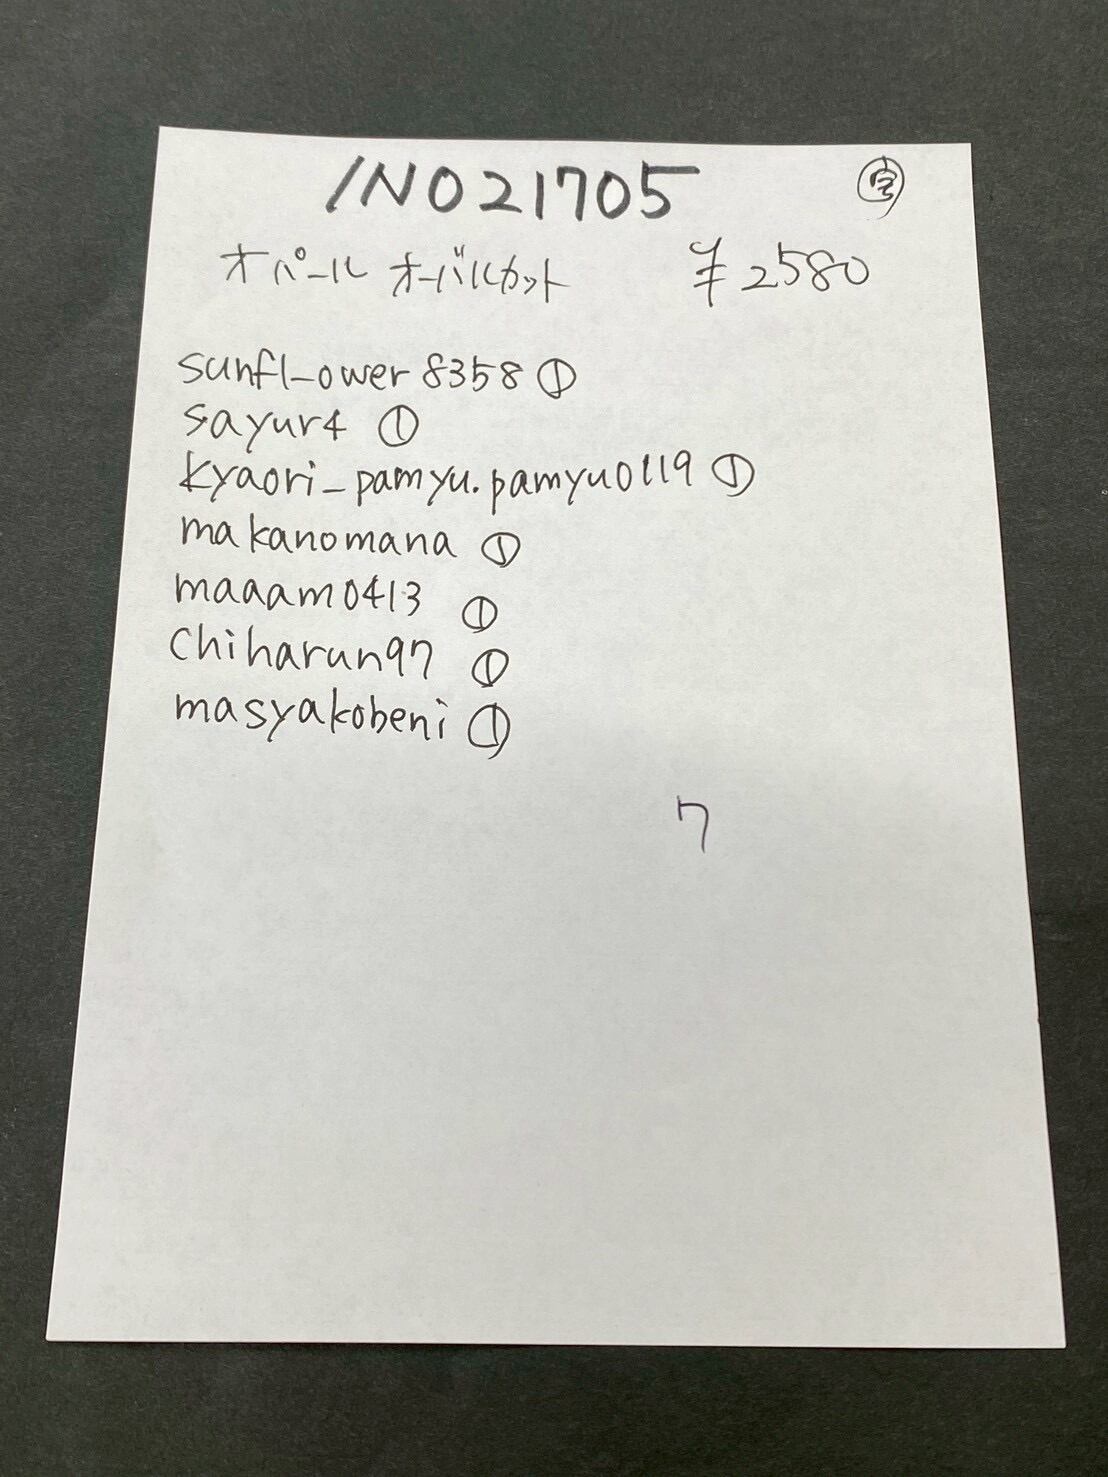 INO21705
オパール オーバルカット ¥2580
sunfl_ower8358 ①
sayur4 ①
kyaori_pamyu.pamyu0119 ①
makanomana ①
maaam0413 ①
chiharun97 ①
masyakobeni ①
7